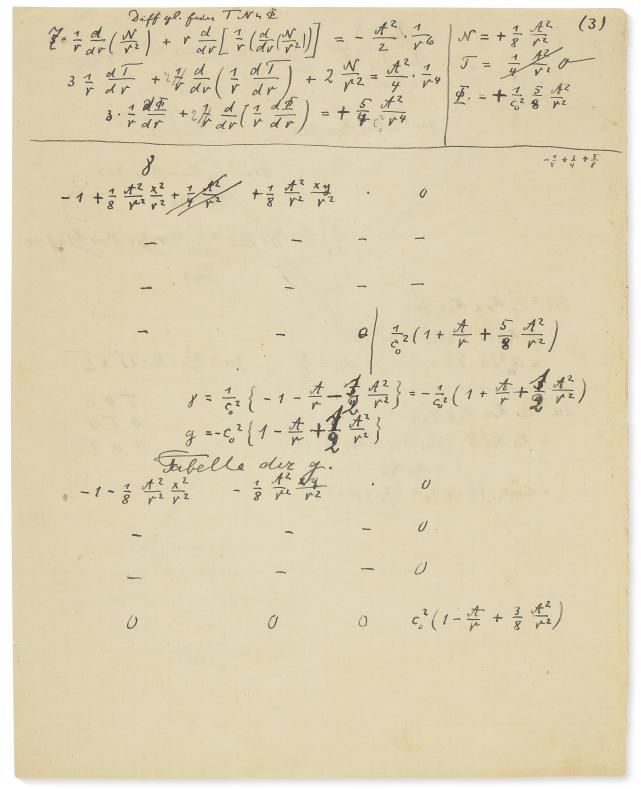 Diff gl. für T N u Φ
(3)
7 · 1/r d/dr (N/r²) + r d/dr [1/r (d/dr (N/r²))] = − A²/2 · 1/r⁶
N = + 1/8 A²/r²
3 1/r dT/dr + r d/dr (1/r dT/dr) + 2 N/r² = A²/4 · 1/r⁴
T = 1/4 A²/r² 0
3 · 1/r dΦ/dr + r d/dr (1/r dΦ/dr) = + 5/4 A²/c₀² r⁴
Φ = + 1/c₀² 5/8 A²/r²
γ
−1 + 1/8 A²/r² x²/r² + 1/4 A²/r² + 1/8 A²/r² xy/r² · 0
− − − −
− − − −
− − 0 | 1/c₀² (1 + A/r + 5/8 A²/r²)
γ = 1/c₀² { −1 − A/r − 1/2 A²/r² } = − 1/c₀² (1 + A/r + 1/2 A²/r²)
g = −c₀² {1 − A/r + 1/2 A²/r²}
Tabelle der g.
−1 − 1/8 A²/r² x²/r² − 1/8 A²/r² xy/r² · 0
− − − 0
− − − 0
0 0 0 c₀² (1 − A/r + 3/8 A²/r²)